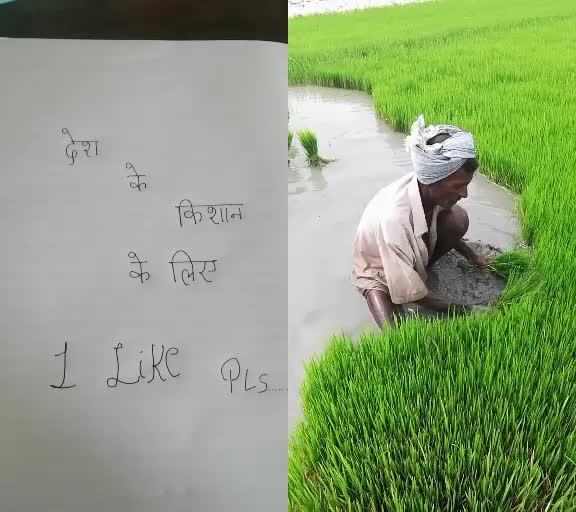 देश
के
किशान
के लिए
1 Like PLS.....